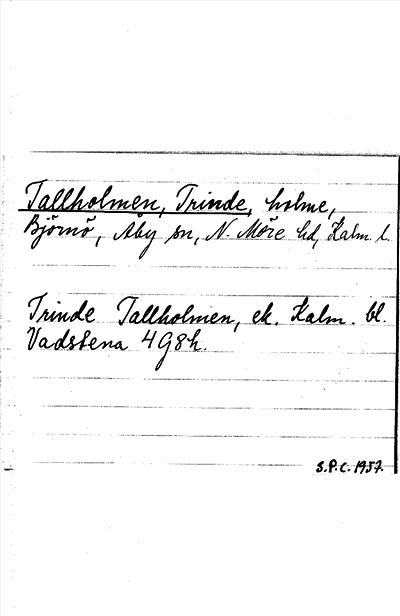 Tallholmen, Trinde, holme,
Björnö, Åby sn, N. Möre hd, Kalm. l.
Trinde Tallholmen, ek. Kalm. bl.
Vadstena 4 G8h.
S.P.C. 1957.